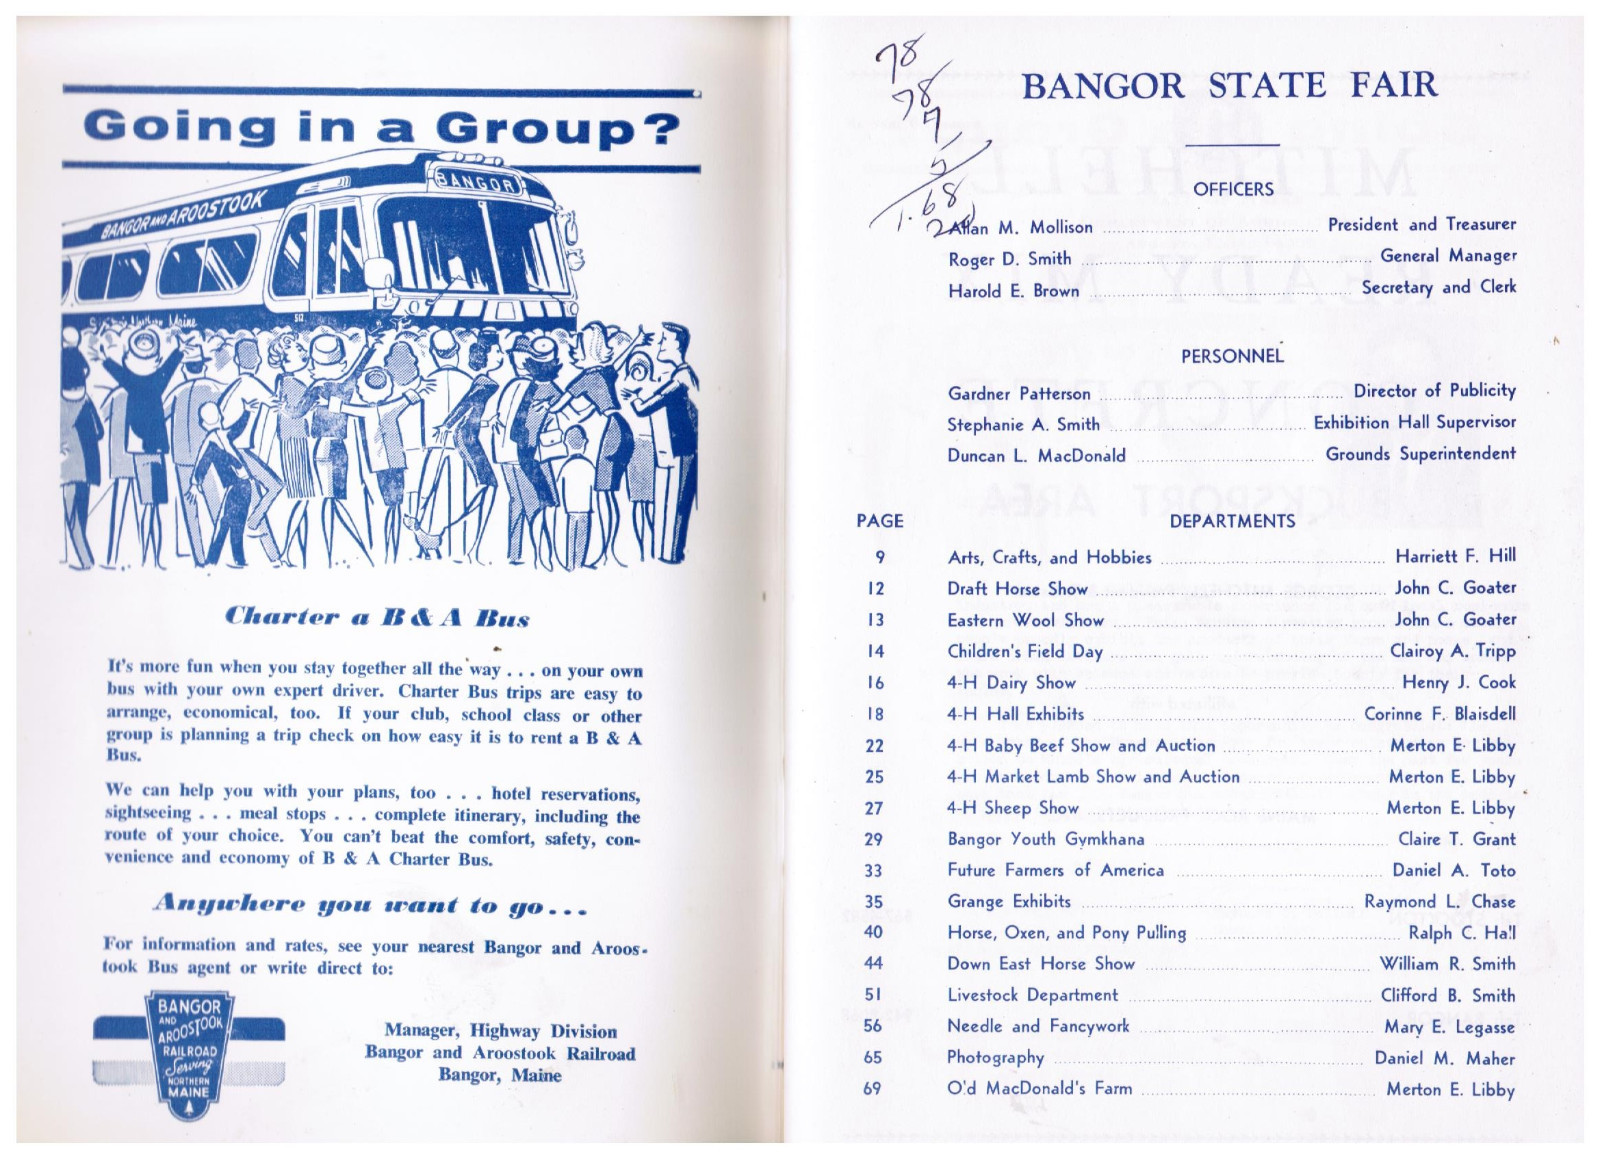 Going in a Group?
BANGOR
BANGOR AND AROOSTOOK
512
Northern Maine
Charter a B & A Bus
It's more fun when you stay together all the way . . . on your own
bus with your own expert driver. Charter Bus trips are easy to
arrange, economical, too. If your club, school class or other
group is planning a trip check on how easy it is to rent a B & A
Bus.
We can help you with your plans, too . . . hotel reservations,
sightseeing . . . meal stops . . . complete itinerary, including the
route of your choice. You can't beat the comfort, safety, con-
venience and economy of B & A Charter Bus.
Anywhere you want to go...
For information and rates, see your nearest Bangor and Aroos-
took Bus agent or write direct to:
BANGOR
AND
AROOSTOOK
RAILROAD
Serving
NORTHERN
MAINE
Manager, Highway Division
Bangor and Aroostook Railroad
Bangor, Maine
78
78
7
5
1.68
BANGOR STATE FAIR
OFFICERS
Allan M. Mollison President and Treasurer
Roger D. Smith General Manager
Harold E. Brown Secretary and Clerk
PERSONNEL
Gardner Patterson Director of Publicity
Stephanie A. Smith Exhibition Hall Supervisor
Duncan L. MacDonald Grounds Superintendent
PAGE DEPARTMENTS
9 Arts, Crafts, and Hobbies Harriett F. Hill
12 Draft Horse Show John C. Goater
13 Eastern Wool Show John C. Goater
14 Children's Field Day Clairoy A. Tripp
16 4-H Dairy Show Henry J. Cook
18 4-H Hall Exhibits Corinne F. Blaisdell
22 4-H Baby Beef Show and Auction Merton E. Libby
25 4-H Market Lamb Show and Auction Merton E. Libby
27 4-H Sheep Show Merton E. Libby
29 Bangor Youth Gymkhana Claire T. Grant
33 Future Farmers of America Daniel A. Toto
35 Grange Exhibits Raymond L. Chase
40 Horse, Oxen, and Pony Pulling Ralph C. Hall
44 Down East Horse Show William R. Smith
51 Livestock Department Clifford B. Smith
56 Needle and Fancywork Mary E. Legasse
65 Photography Daniel M. Maher
69 O'd MacDonald's Farm Merton E. Libby